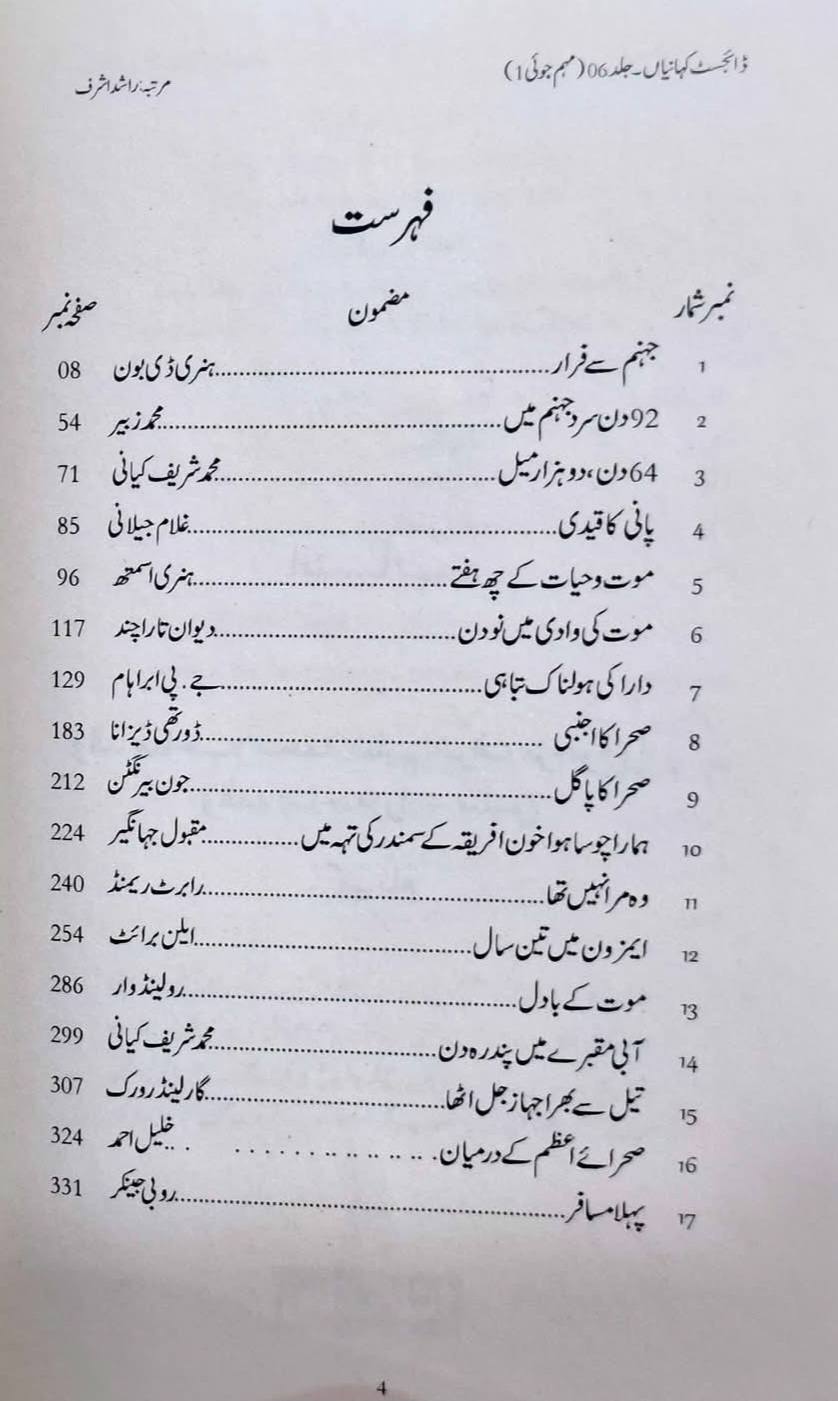 ڈائجسٹ کہانیاں۔جلد 06 (مہم جوئی 1)
مرتبہ: راشد اشرف
فہرست
نمبر شمار مضمون صفحہ نمبر
1 جہنم سے فرار........ہنری ڈی بون 08
2 92 دن سرد جہنم میں........محمد زبیر 54
3 64 دن، دو ہزار میل........محمد شریف کیانی 71
4 پانی کا قیدی........غلام جیلانی 85
5 موت و حیات کے چھ ہفتے........ہنری اسمتھ 96
6 موت کی وادی میں نو دن........دیوان تارا چند 117
7 دارا کی ہولناک تباہی........جے. پی ابراہام 129
8 صحرا کا اجنبی........ڈورتھی ڈیزانا 183
9 صحرا کا پاگل........جون بیرنگٹن 212
10 ہمارا چوسا ہوا خون افریقہ کے سمندر کی تہہ میں........مقبول جہانگیر 224
11 وہ مرا نہیں تھا........رابرٹ ریمنڈ 240
12 ایمزون میں تین سال........ایلن برائٹ 254
13 موت کے بادل........رولینڈ وار 286
14 آبی مقبرے میں پندرہ دن........محمد شریف کیانی 299
15 تیل سے بھرا جہاز جل اٹھا........گارلینڈ رورک 307
16 صحرائے اعظم کے درمیان........خلیل احمد 324
17 پہلا مسافر........روبی جینکر 331
4